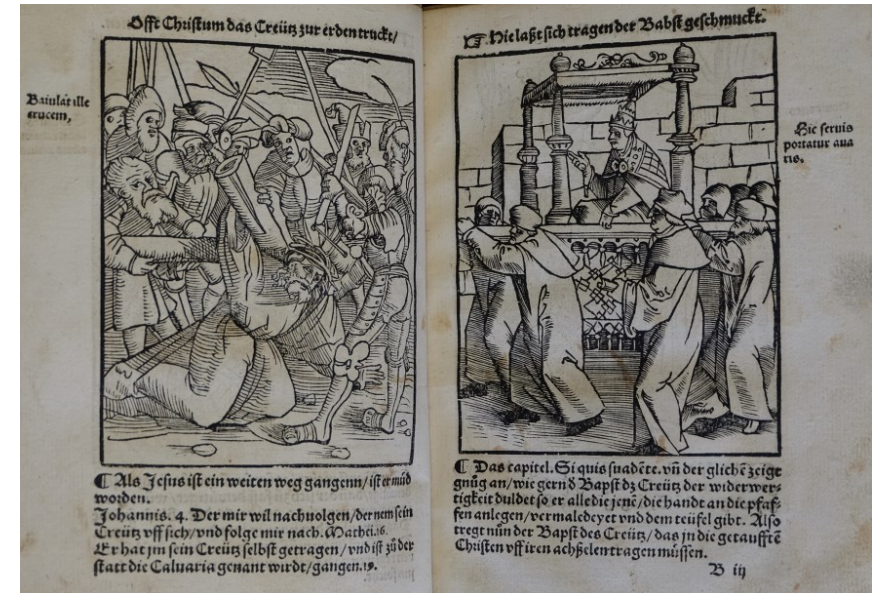 Offt Christum das Creütz zur erden truckt/
Baiulat ille
crucem,
¶ Als Jesus ist ein weiten weg gangenn/ist er müd
worden.
Johannis. 4. Der mir wil nachuolgen/der nem sein
Creütz vff sich/vnd folge mir nach. Mathei.16.
Er hat jm sein Creütz selbst getragen/vnd ist zů der
statt die Caluaria genant wirdt/gangen.19.
☞ Hie laßt sich tragen der Babst geschmuckt.
Hic seruis
portatur aua
ris.
¶ Das capitel. Si quis suadēte. vñ der glichē zeigt
gnůg an/wie gern d Bapst dz Creütz der widerwer-
tigkeit duldet so er alle die jene/die handt an die pfaf-
fen anlegen/vermaledeyet vnd dem teüfel gibt. Also
tregt nůn der Bapst des Creütz/das jn die getaufftē
Christen vff iren achßelen tragen müssen.
B iij